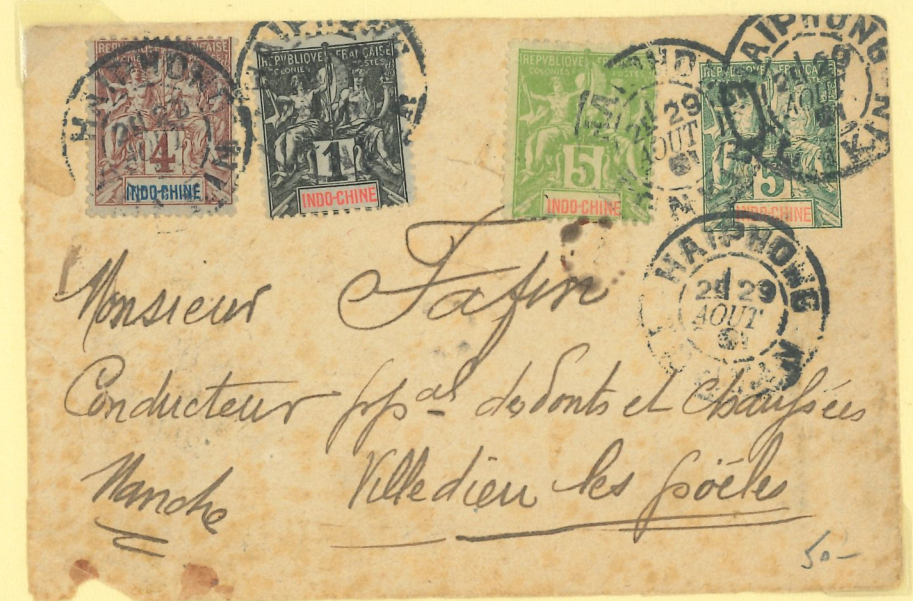 REPUBLIQUE FRANÇAISE
4
INDO-CHINE
REPUBLIQUE FRANÇAISE
COLONIES POSTES
1
INDO-CHINE
REPUBLIQUE FRANÇAISE
COLONIES POSTES
5
INDO-CHINE
REPUBLIQUE FRANÇAISE
5
INDO-CHINE
HAIPHONG
HAIPHONG
29
AOUT
HAIPHONG
AOUT
HAIPHONG
29
AOUT
Monsieur Fafin
Conducteur ppal des Ponts et Chaussées
Manche Villedieu les poëles
50-